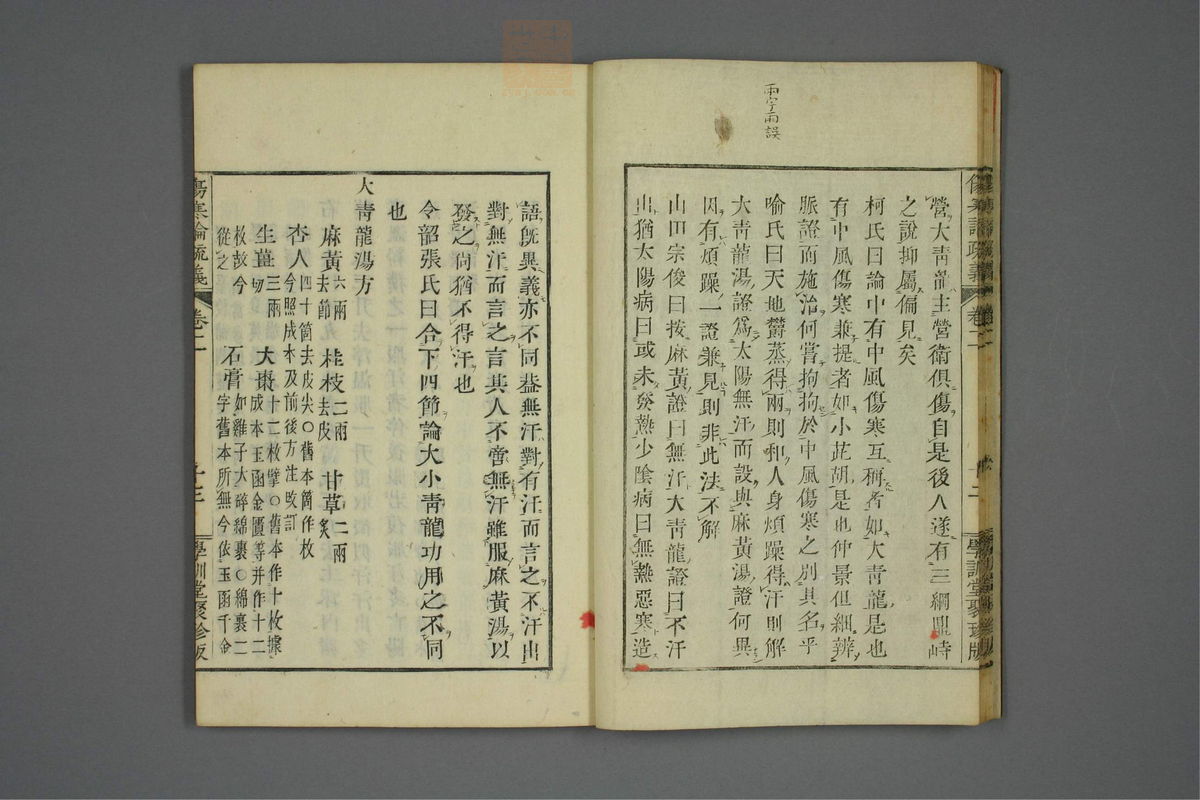 兩字雨誤
營大靑龍主營衛俱傷自是後人遂有三綱鼎峙
之說抑屬偏見矣
柯氏曰論中有中風傷寒互稱者如大靑龍是也
有中風傷寒兼提者如小茈胡是也仲景但細辨
脈證而施治何嘗拘拘於中風傷寒之別其名乎
喻氏曰天地欝蒸得兩則和人身煩躁得汗則解
大靑龍湯證爲太陽無汗而設與麻黃湯證何異
因有煩躁一證兼見則非此法不解
山田宗俊曰按麻黃證曰無汗大靑龍證曰不汗
出猶太陽病曰或未發熱少陰病曰無熱惡寒造
傷寒論疏義
卷二
學訓堂聚珍版
語旣異義亦不同葢無汗對有汗而言之不汗出
對無汗而言之言其人不啻無汗雖服麻黃湯以
發之尙猶不得汗也
令韶張氏曰合下四節論大小靑龍功用之不同
也
大靑龍湯方
麻黃六兩去節 桂枝二兩去皮 甘草二兩炙
杏人四十箇去皮尖○舊本箇作枚今照成本及前後方注改訂
生薑三兩切 大棗十二枚擘○舊本作十枚據成本玉函金匱等并作十二
枚故今從之 石膏如雞子大碎綿裹○綿裹二字舊本所無今依玉函千金
傷寒論疏義
卷二
十三
學訓堂聚珍版